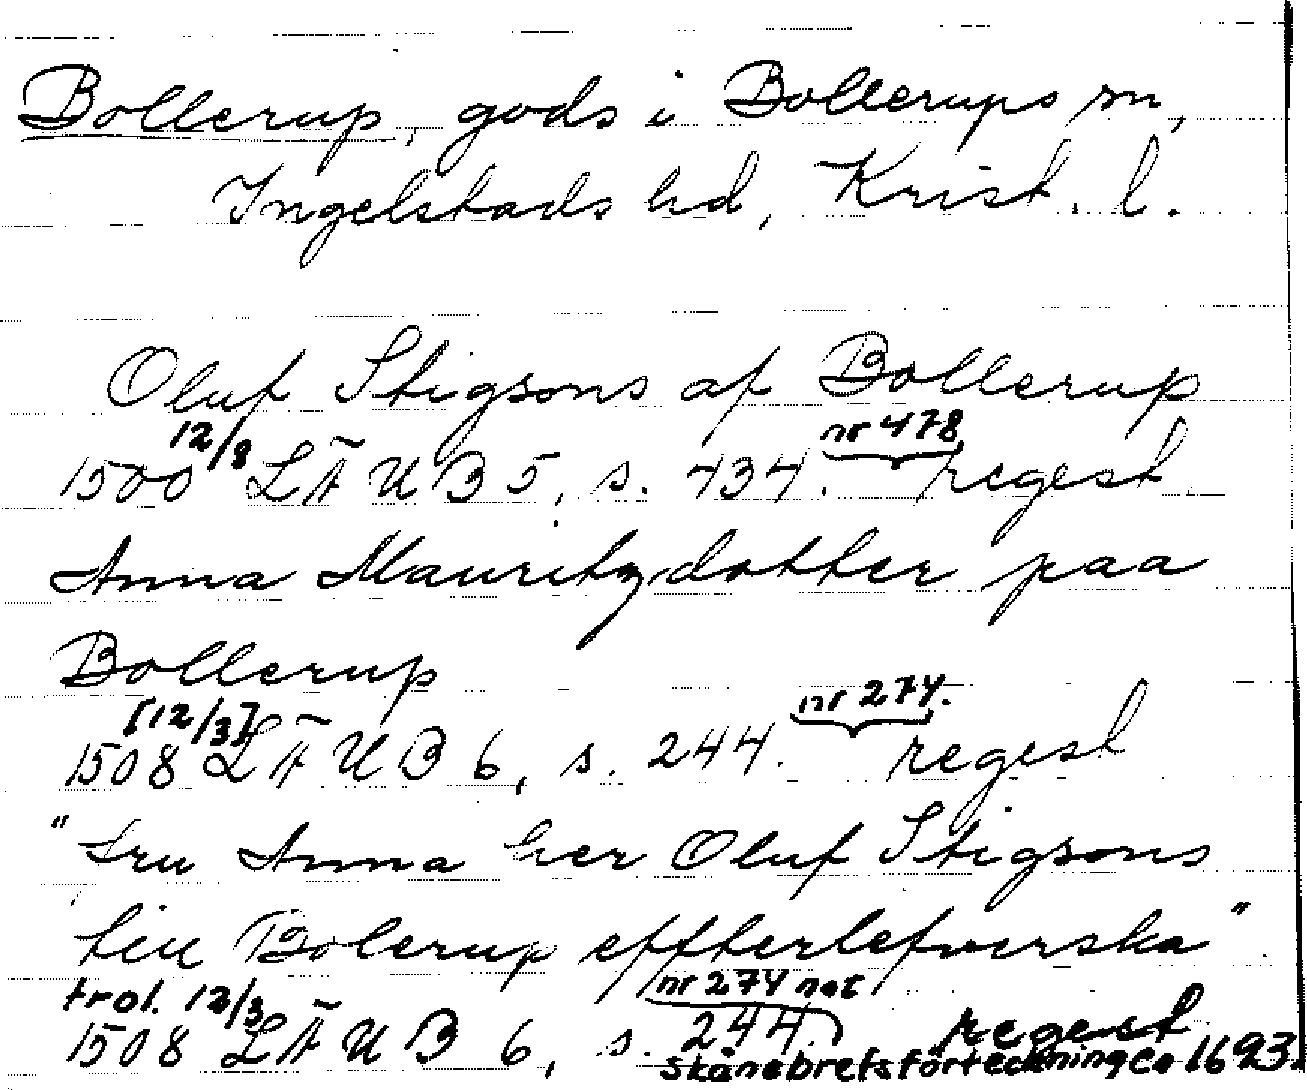 Bollerup, gods i Bollerups sn,
Ingelstads hd, Krist. l.
Oluf Stigsons af Bollerup
12/8 nr 478
1500 LÄUB 5, s. 434. regest
Anna Mauritzdotter paa
Bollerup
[12/3] nr 274.
1508 LÄUB 6, s. 244. regest
"fru Anna her Oluf Stigsons
till Bolerup effterlefwerska".
trol. 12/3 nr 274 not
1508 LÄUB 6, s. 244. regest
skånebrefsförteckning ca 1693.